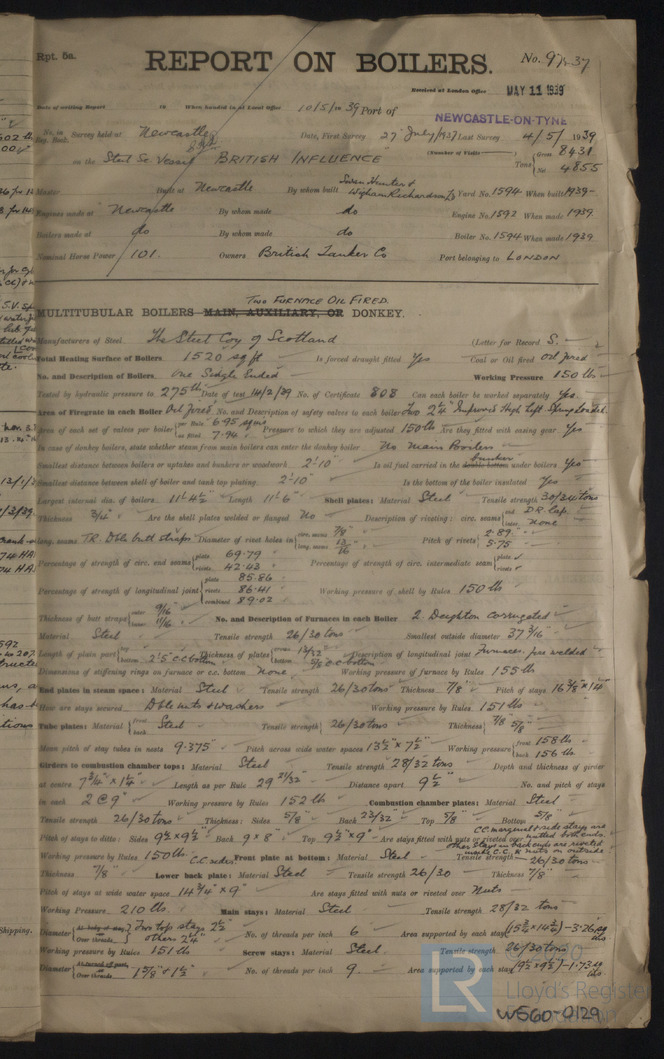 Rpt. 5a.
REPORT ON BOILERS.
No. 97537
Received at London Office MAY 11 1939
Date of writing Report 19 When handed in at Local Office 10/5/19 39 Port of NEWCASTLE-ON-TYNE
No. in Reg. Book. Survey held at Newcastle Date, First Survey 27 July/1937 Last Survey 4/5/1939
on the Steel Sc Vessel "BRITISH INFLUENCE" (Number of Visits) Tons Gross 8431 Net 4855
Master Built at Newcastle By whom built Swan Hunter & Wigham Richardson Ld Yard No. 1594 When built 1939
Engines made at Newcastle By whom made do Engine No. 1592 When made 1939
Boilers made at do By whom made do Boiler No. 1594 When made 1939
Nominal Horse Power 101. Owners British Tanker Co Port belonging to LONDON
TWO FURNACE OIL FIRED.
MULTITUBULAR BOILERS MAIN, AUXILIARY, OR DONKEY.
Manufacturers of Steel The Steel Coy of Scotland (Letter for Record S.
Total Heating Surface of Boilers 1520 sq ft Is forced draught fitted Yes Coal or Oil fired Oil fired
No. and Description of Boilers One Single Ended Working Pressure 150 lbs
Tested by hydraulic pressure to 275 lbs Date of test 14/2/39 No. of Certificate 808 Can each boiler be worked separately Yes
Area of Firegrate in each Boiler Oil fired No. and Description of safety valves to each boiler Two 2¼" Improved High Lift Spring Loaded.
Area of each set of valves per boiler per Rule 6.95 sq ins as fitted 7.94 Pressure to which they are adjusted 150 lb Are they fitted with easing gear Yes
In case of donkey boilers, state whether steam from main boilers can enter the donkey boiler No Main Boilers
Smallest distance between boilers or uptakes and bunkers or woodwork 2'-10" Is oil fuel carried in the double bottom bunker under boilers Yes
Smallest distance between shell of boiler and tank top plating 2'-10" Is the bottom of the boiler insulated Yes
Largest internal dia. of boilers 11' 4½" Length 11' 6" Shell plates: Material Steel Tensile strength 30/34 tons
Thickness ¾" Are the shell plates welded or flanged No Description of riveting: circ. seams end D.R. lap. inter. None
long. seams T.R. Dble butt straps Diameter of rivet holes in circ. seams 7/8" long. seams 13/16 Pitch of rivets 2.89 5.75
Percentage of strength of circ. end seams plate 69.79 rivets 42.43 Percentage of strength of circ. intermediate seam plate rivets
Percentage of strength of longitudinal joint plate 85.86 rivets 86.41 combined 89.02 Working pressure of shell by Rules 150 lb
Thickness of butt straps outer 9/16" inner 11/16" No. and Description of Furnaces in each Boiler 2. Deighton corrugated
Material Steel Tensile strength 26/30 tons Smallest outside diameter 37 3/16"
Length of plain part top bottom 2' 5" CC bottom Thickness of plates crown 13/32 bottom CC bottom Description of longitudinal joint Furnaces fire welded
Dimensions of stiffening rings on furnace or c.c. bottom None Working pressure of furnace by Rules 155 lb
End plates in steam space: Material Steel Tensile strength 26/30 tons Thickness 7/8" Pitch of stays 16 3/8" x 14"
How are stays secured Dble nuts & washers Working pressure by Rules 151 lb
Tube plates: Material front back Steel Tensile strength 26/30 tons Thickness 7/8" 5/8"
Mean pitch of stay tubes in nests 9.375" Pitch across wide water spaces 13½" x 7½" Working pressure front 158 lb back 156 lb
Girders to combustion chamber tops: Material Steel Tensile strength 28/32 tons Depth and thickness of girder
at centre Length as per Rule 29 21/32" Distance apart 9½"
No. and pitch of stays
in each 2 @ 9" Working pressure by Rules 152 lb Combustion chamber plates: Material Steel
Tensile strength 26/30 tons Thickness: Sides 5/8" Back 23/32" Top 5/8" Bottom 5/8"
Pitch of stays to ditto: Sides 9½" x 9½" Back 9" x 8" Top 9½" x 9" Are stays fitted with nuts or riveted over CC marginal & side stays are nutted both ends. other stays in back ends are riveted inside C.C. & nuts on outside.
Working pressure by Rules 150 lb C.C. sides. Front plate at bottom: Material Steel Tensile strength 26/30 tons
Thickness 7/8" Lower back plate: Material Steel Tensile strength 26/30 Thickness 7/8"
Pitch of stays at wide water space 14¾" x 9" Are stays fitted with nuts or riveted over Nuts
Working Pressure 210 lb Main stays: Material Steel Tensile strength 28/32 tons
Diameter At body of stay, Over threads Two top stays 2½" others 2¼" No. of threads per inch 6 Area supported by each stay
Working pressure by Rules 151 lb Screw stays: Material Steel Tensile strength 26/30 tons
Diameter At turned off part, Over threads 1 5/8" & 1½" No. of threads per inch 9. Area supported by each stay (9½ x 9½) - 1.73 sq ins
LR
Lloyd's Register
W560-0129